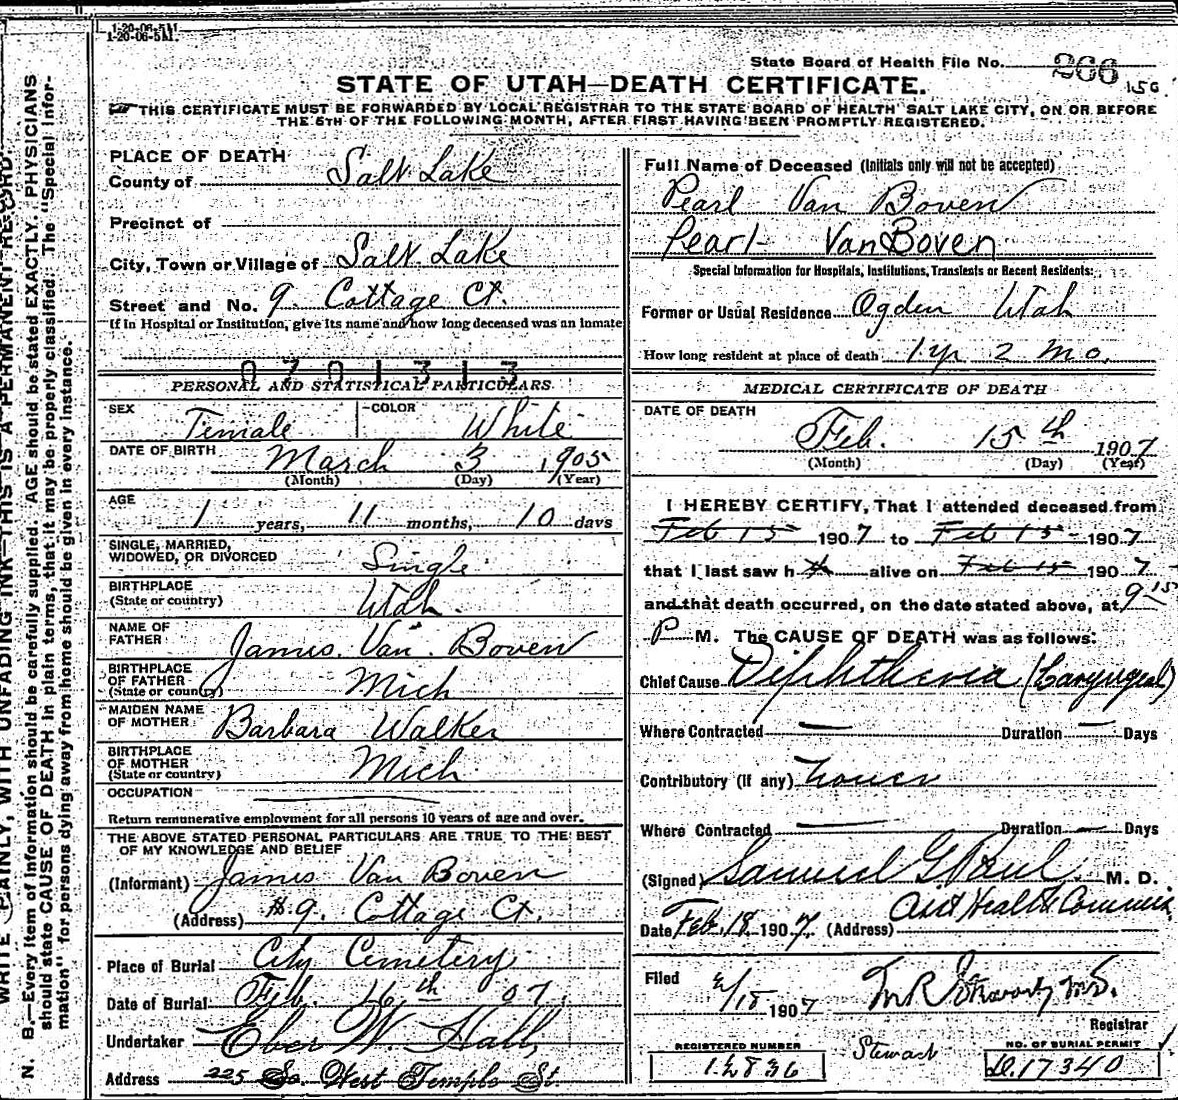 1-20-06-5M.
State Board of Health File No. 266
STATE OF UTAH—DEATH CERTIFICATE.
THIS CERTIFICATE MUST BE FORWARDED BY LOCAL REGISTRAR TO THE STATE BOARD OF HEALTH SALT LAKE CITY, ON OR BEFORE
THE 5TH OF THE FOLLOWING MONTH, AFTER FIRST HAVING BEEN PROMPTLY REGISTERED.
WRITE PLAINLY, WITH UNFADING INK—THIS IS A PERMANENT RECORD.
N. B.—Every item of information should be carefully supplied. AGE should be stated EXACTLY. PHYSICIANS
should state CAUSE OF DEATH in plain terms, that it may be properly classified. The "Special Infor-
mation" for persons dying away from home should be given in every instance.
PLACE OF DEATH
County of Salt Lake
Precinct of
City, Town or Village of Salt Lake
Street and No. 9 Cottage Ct.
If in Hospital or Institution, give its name and how long deceased was an inmate
0701313
PERSONAL AND STATISTICAL PARTICULARS
SEX Female COLOR White
DATE OF BIRTH March 3 1905
(Month) (Day) (Year)
AGE 1 years, 11 months, 10 days
SINGLE, MARRIED,
WIDOWED, OR DIVORCED Single
BIRTHPLACE
(State or country) Utah.
NAME OF
FATHER James Van Boven
BIRTHPLACE
OF FATHER
(State or country) Mich
MAIDEN NAME
OF MOTHER Barbara Walker
BIRTHPLACE
OF MOTHER
(State or country) Mich
OCCUPATION
Return remunerative employment for all persons 10 years of age and over.
THE ABOVE STATED PERSONAL PARTICULARS ARE TRUE TO THE BEST
OF MY KNOWLEDGE AND BELIEF
(Informant) James Van Boven
(Address) 9. Cottage Ct.
Place of Burial City Cemetery
Date of Burial Feb. 16th 07.
Undertaker Eber W. Hall,
Address 225 So. West Temple St
Full Name of Deceased (Initials only will not be accepted)
Pearl Van Boven
Pearl Van Boven
Special Information for Hospitals, Institutions, Transients or Recent Residents:
Former or Usual Residence Ogden Utah
How long resident at place of death 1 yr 2 mo.
MEDICAL CERTIFICATE OF DEATH
DATE OF DEATH
Feb. 15th 1907
(Month) (Day) (Year)
I HEREBY CERTIFY, That I attended deceased from
Feb 15 1907 to Feb 15 1907
that I last saw h alive on Feb 15 1907
and that death occurred, on the date stated above, at 9 15
P M. The CAUSE OF DEATH was as follows:
Chief Cause Diphtheria (Laryngeal)
Where Contracted — Duration — Days
Contributory (if any)
Where Contracted — Duration — Days
(Signed) Samuel G. Paul. M. D.
Date Feb. 18 1907. (Address) Asst Health Commis
Filed 2/18 1907
Registrar
REGISTERED NUMBER
12836
Stewart
NO. OF BURIAL PERMIT
D.17340